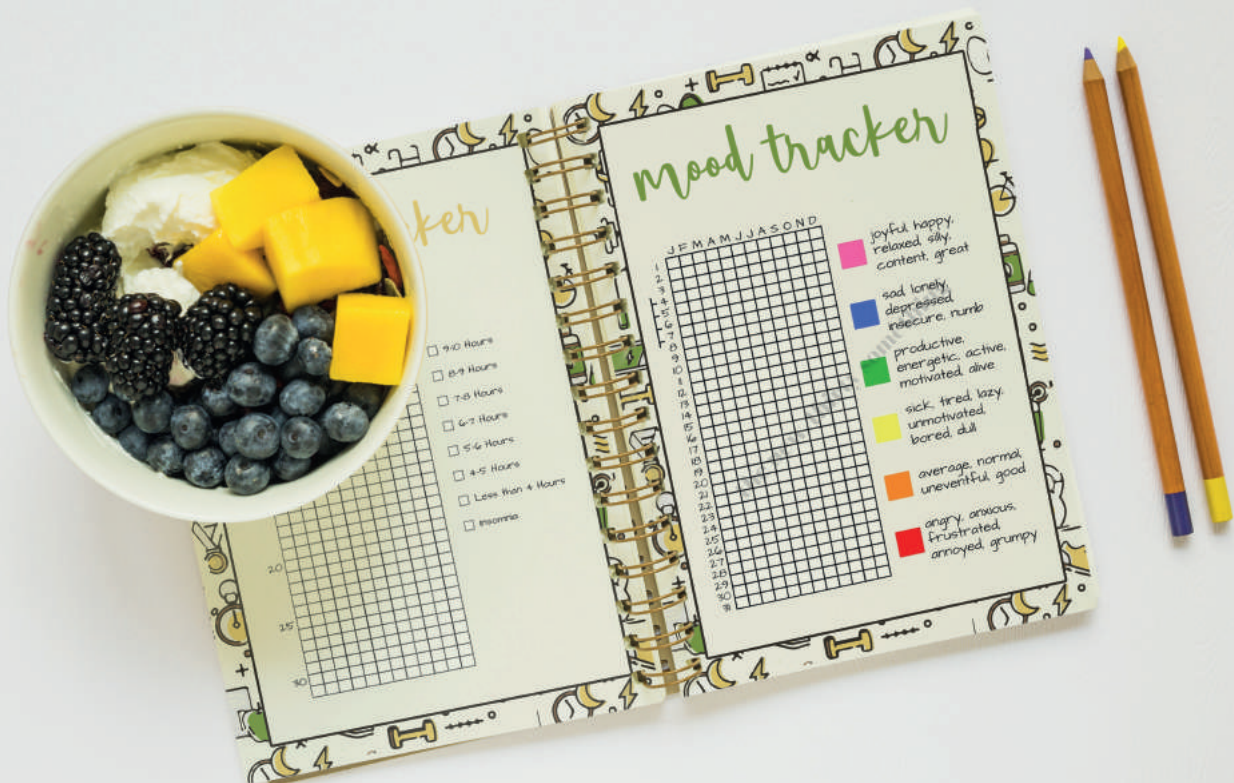 cker
9-10 Hours
8-9 Hours
7-8 Hours
6-7 Hours
5-6 Hours
4-5 Hours
Less than 4 Hours
insomnia
20
25
30
mood tracker
J F M A M J J A S O N D
1
2
3
4
5
6
7
8
9
10
11
12
13
14
15
16
17
18
19
20
21
22
23
24
25
26
27
28
29
30
31
joyful, happy,
relaxed, silly,
content, great
sad, lonely,
depressed,
insecure, numb
productive,
energetic, active,
motivated, alive
sick, tired, lazy,
unmotivated,
bored, dull
average, normal,
uneventful, good
angry, anxious,
frustrated,
annoyed, grumpy